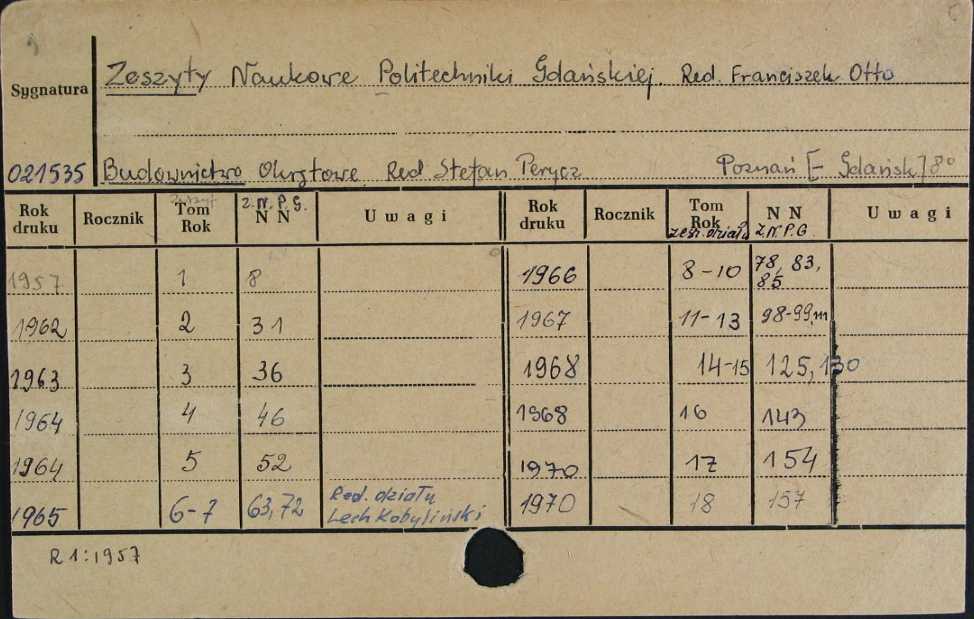 Zeszyty Naukowe Politechniki Gdańskiej. Red. Franciszek Otto
Sygnatura
021535 Budownictwo Okrętowe. Red Stefan Perycz Poznań [- Gdańsk] 8°
Rok druku Rocznik Tom Rok zeszyt Z.N.P.G. N N Uwagi Rok druku Rocznik Tom Rok zesz. działu N N Z.N.P.G. Uwagi
1957 1 8 1966 8-10 78, 83, 85
1962 2 31 1967 11-13 98-99, 111
1963 3 36 1968 14-15 125, 130
1964 4 46 1968 16 143
1964 5 52 1970 17 154
1965 6-7 63, 72 Red. działu Lech Kobyliński 1970 18 157
R 1: 1957